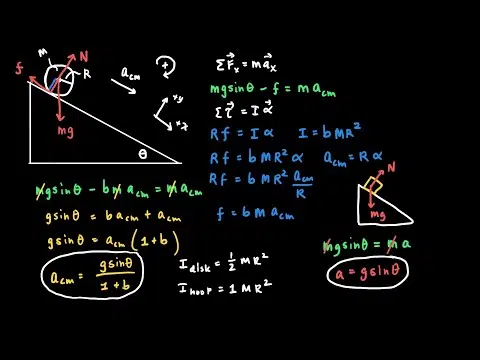 m
N
f
R
a_cm
+
xy
xx
mg
θ
ΣF⃗_x = ma⃗_x
mgsinθ - f = m a_cm
Στ⃗ = Iα⃗
Rf = I α   I = bMR²
Rf = b MR² α   a_cm = R α
Rf = b MR² a_cm/R
f = b m a_cm
mgsinθ - b m a_cm = m a_cm
gsinθ = b a_cm + a_cm
gsinθ = a_cm (1+b)
a_cm = gsinθ/1+b
I_disk = 1/2 MR²
I_hoop = 1 MR²
N
mg
mgsinθ = m a
a = gsinθ